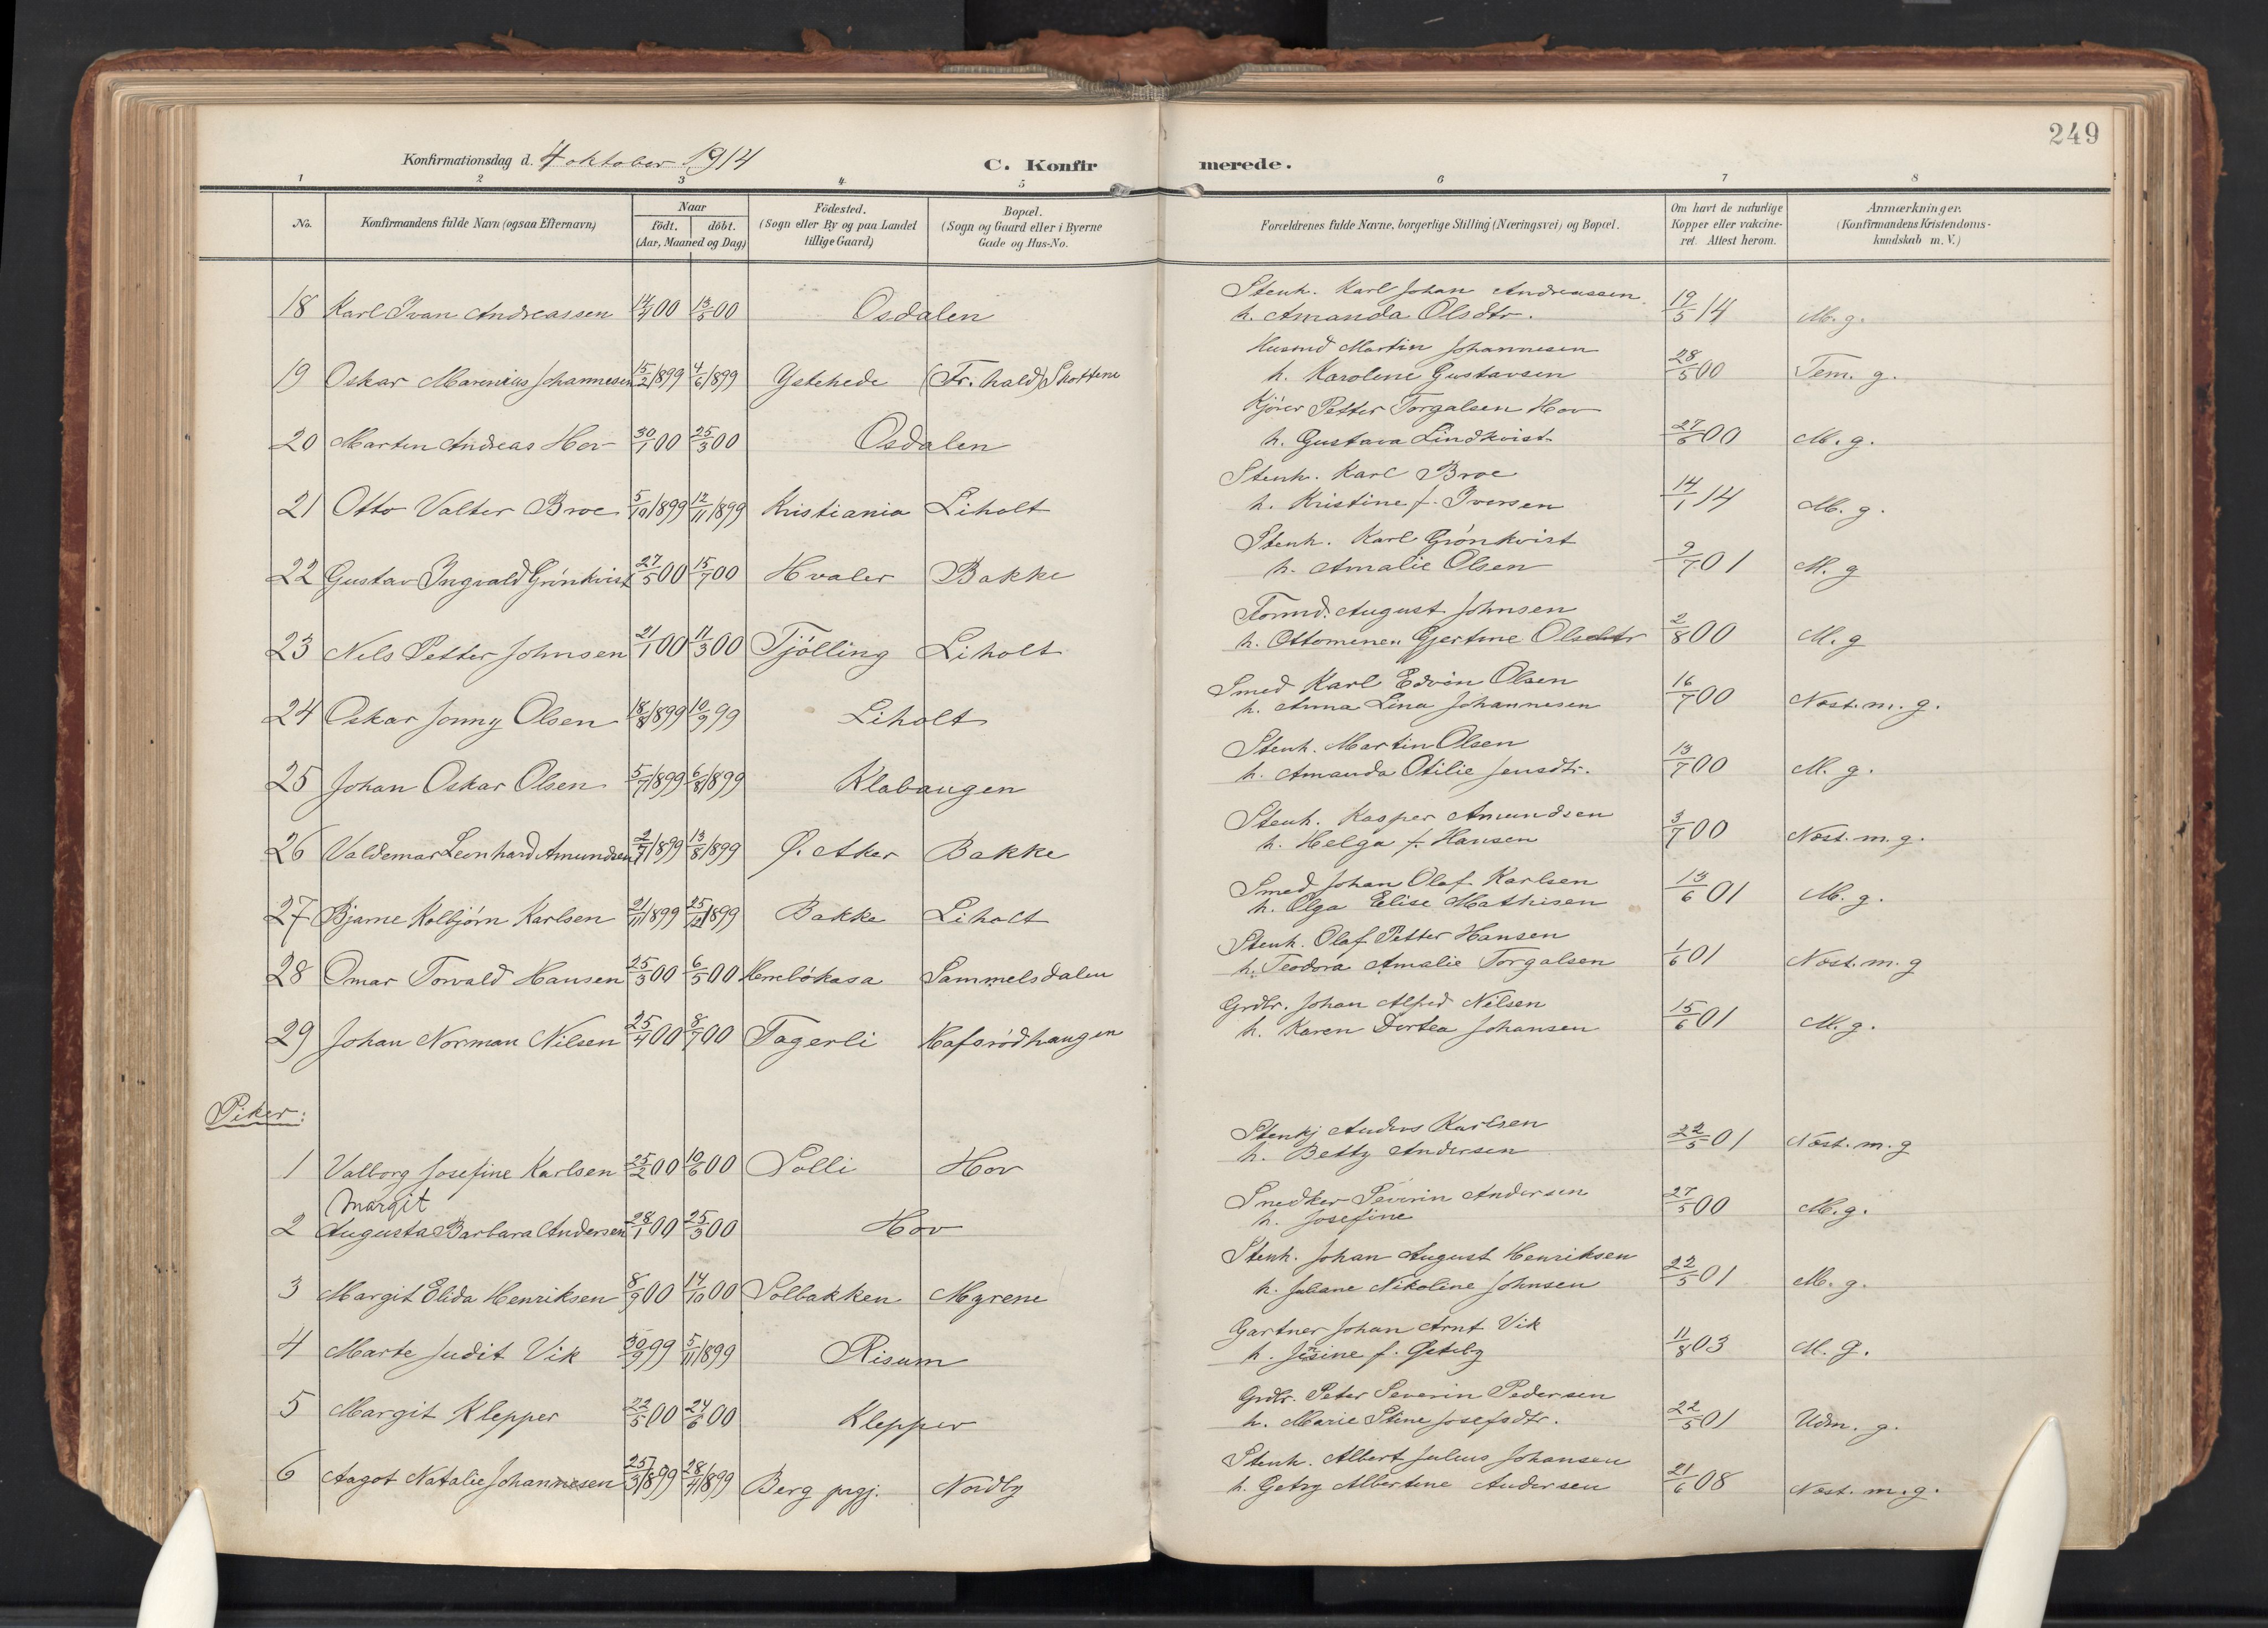 249
Konfirmationsdag d. 4 oktober 1914
C. Konfirmerede.
1 2 3 4 5 6 7 8
No.
Konfirmandens fulde Navn (ogsaa Efternavn)
Naar
födt. döbt.
(Aar, Maaned og Dag)
Födested.
(Sogn eller By og paa Landet
tillige Gaard)
Bopæl.
(Sogn og Gaard eller i Byerne
Gade og Hus-No.
Forældrenes fulde Navne, borgerlige Stilling (Næringsvei) og Bopæl.
Om havt de naturlige
Kopper eller vakcine-
ret. Attest herom.
Anmærkninger.
(Konfirmandens Kristendoms-
kundskab m. V.)
Stenh. Karl Johan Andreassen
18 Karl Ivan Andreassen 14/4 00 13/5 00 Osdalen h. Amanda Olsdtr. 19/5 14 M. g.
Husmd Martin Johannesen
19 Oskar Marenius Johannesen 15/2 1899 4/6 1899 Ystehede (Fr.hald) Skottene h. Karoline Gustavsen 28/5 00 Tem. g.
Kjører Petter Torgalsen Hov
20 Martin Andreas Hov 30/1 00 25/3 00 Osdalen h. Gustava Lindkvist 27/6 00 M. g.
Stenh. Karl Broe
21 Otto Valter Broe 5/10 1899 12/11 1899 Kristiania Liholt h. Kristine f. Iversen 14/1 14 M. g.
Stenh. Karl Grönkvist
22 Gustav Ingvald Grönkvist 27/5 00 15/7 00 Hvaler Bakke h. Amalie Olsen 9/7 01 M. g
Formd. August Johnsen
23 Nils Petter Johnsen 21/1 00 11/3 00 Tjölling Liholt h. Ottomine Gjertine Olsdtr 2/8 00 M. g
Smed Karl Edvin Olsen
24 Oskar Jonny Olsen 18/8 1899 10/9 99 Liholt h. Anna Lina Johannesen 16/7 00 Næst. m. g.
Stenh. Martin Olsen
25 Johan Oskar Olsen 5/7 1899 6/8 1899 Klabaugen h. Amanda Otilie Jensdtr. 13/7 00 M. g.
Stenh. Kasper Amundsen
26 Valdemar Leonhard Amundsen 2/7 1899 13/8 1899 Ø. Aker Bakke h. Helga f. Hansen 3/7 00 Næst. m. g.
Smed Johan Olaf Karlsen
27 Bjarne Kolbjörn Karlsen 21/11 1899 25/12 1899 Bakke Liholt h. Olga Elise Mathisen 13/6 01 M. g.
Stenh. Olaf Petter Hansen
28 Omar Torvald Hansen 25/3 00 6/5 00 Herrebökasa Sammelsdalen h. Teodora Amalie Torgalsen 1/6 01 Næst. m. g
Grdbr. Johan Alfred Nilsen
29 Johan Norman Nilsen 25/4 00 8/7 00 Fagerli Hafsrödhaugen h. Karen Dortea Johansen 15/6 01 M. g.
Piker:
Stenkj Anders Karlsen
1 Valborg Josefine Karlsen 25/2 00 10/6 00 Solli Hov h. Betty Andersen 22/5 01 Næst. m. g
Margit Snedker Severin Andersen
2 Augusta Barbara Andersen 28/1 00 25/3 00 Hov h. Josefine 27/5 00 M. g.
Stenh. Johan August Henriksen
3 Margit Elida Henriksen 8/9 00 14/10 00 Solbakken Myrene h. Juliane Nikoline Johnsen 22/5 01 M. g.
Gartner Johan Arnt Vik
4 Marte Judit Vik 30/9 99 5/11 1899 Risum h. f. 11/8 03 M. g.
Grdbr. Peter Severin Pedersen
5 Margit Klepper 22/5 00 24/6 00 Klepper h. Marie Stine Josefsdtr. 22/5 01 Udm. g.
Stenh. Albert Julius Johansen
6 Aagot Natalie Johannesen 25/3 1899 28/4 1899 Berg prgj. Nordby h. Albertine Andersen 21/6 08 Næst. m. g.